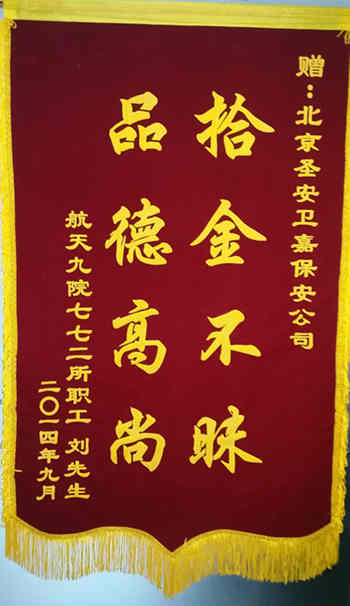 赠：北京圣安卫嘉保安公司
拾金不昧
品德高尚
航天九院七七二所职工 刘先生
二〇一四年九月